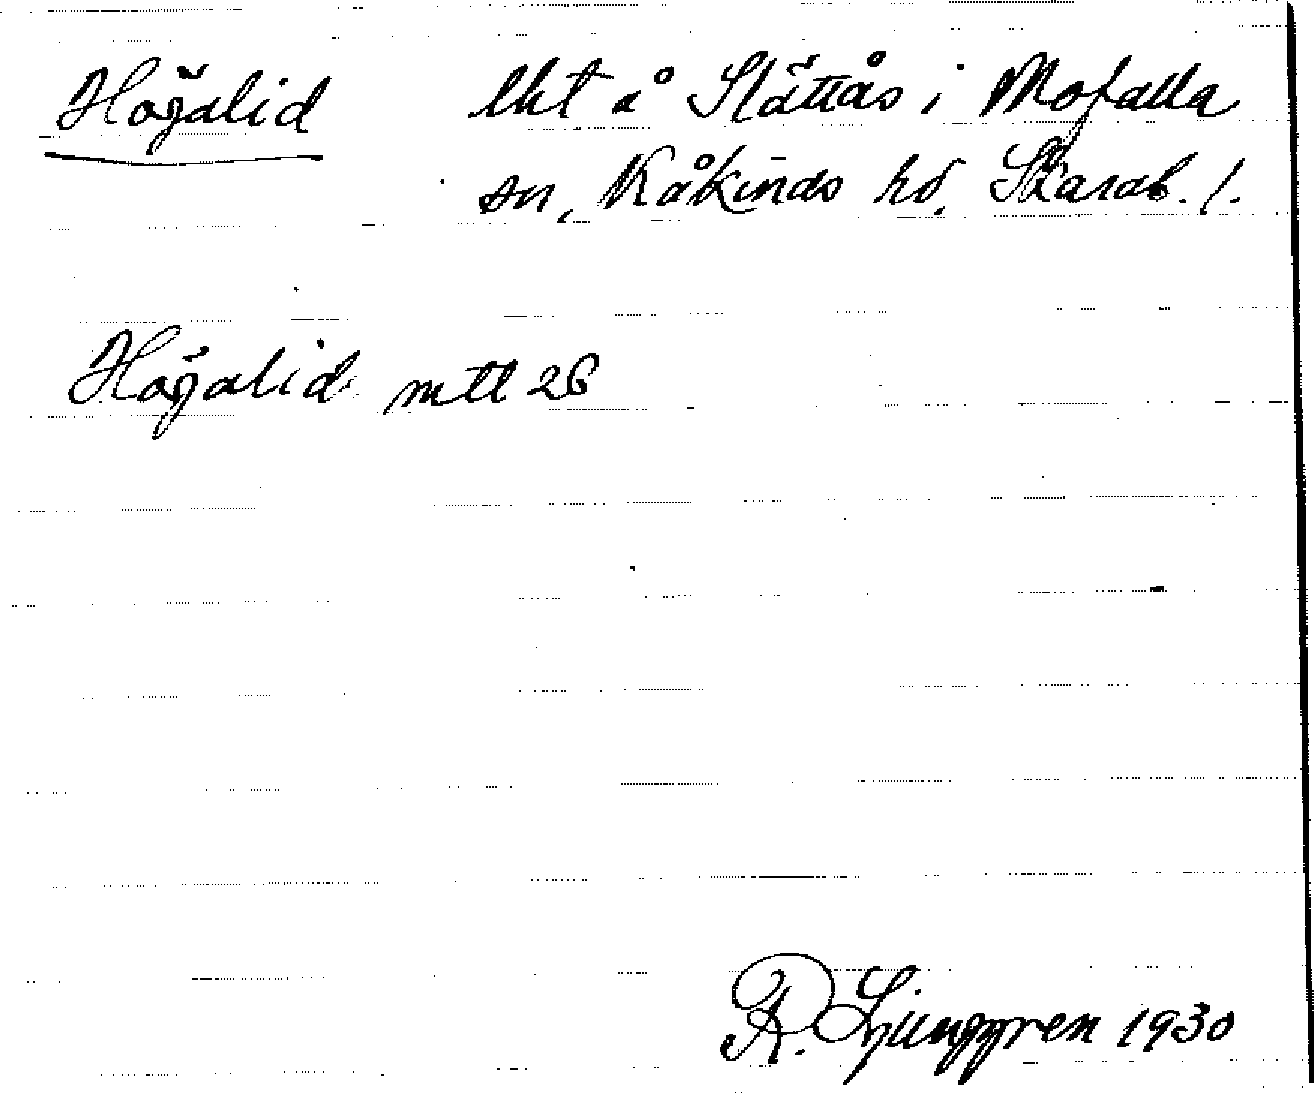 Högalid lht å Slättås i Mofalla
sn, Kåkinds hd. Skarab. l.
Högalid mtl 26
R. Ljunggren 1930